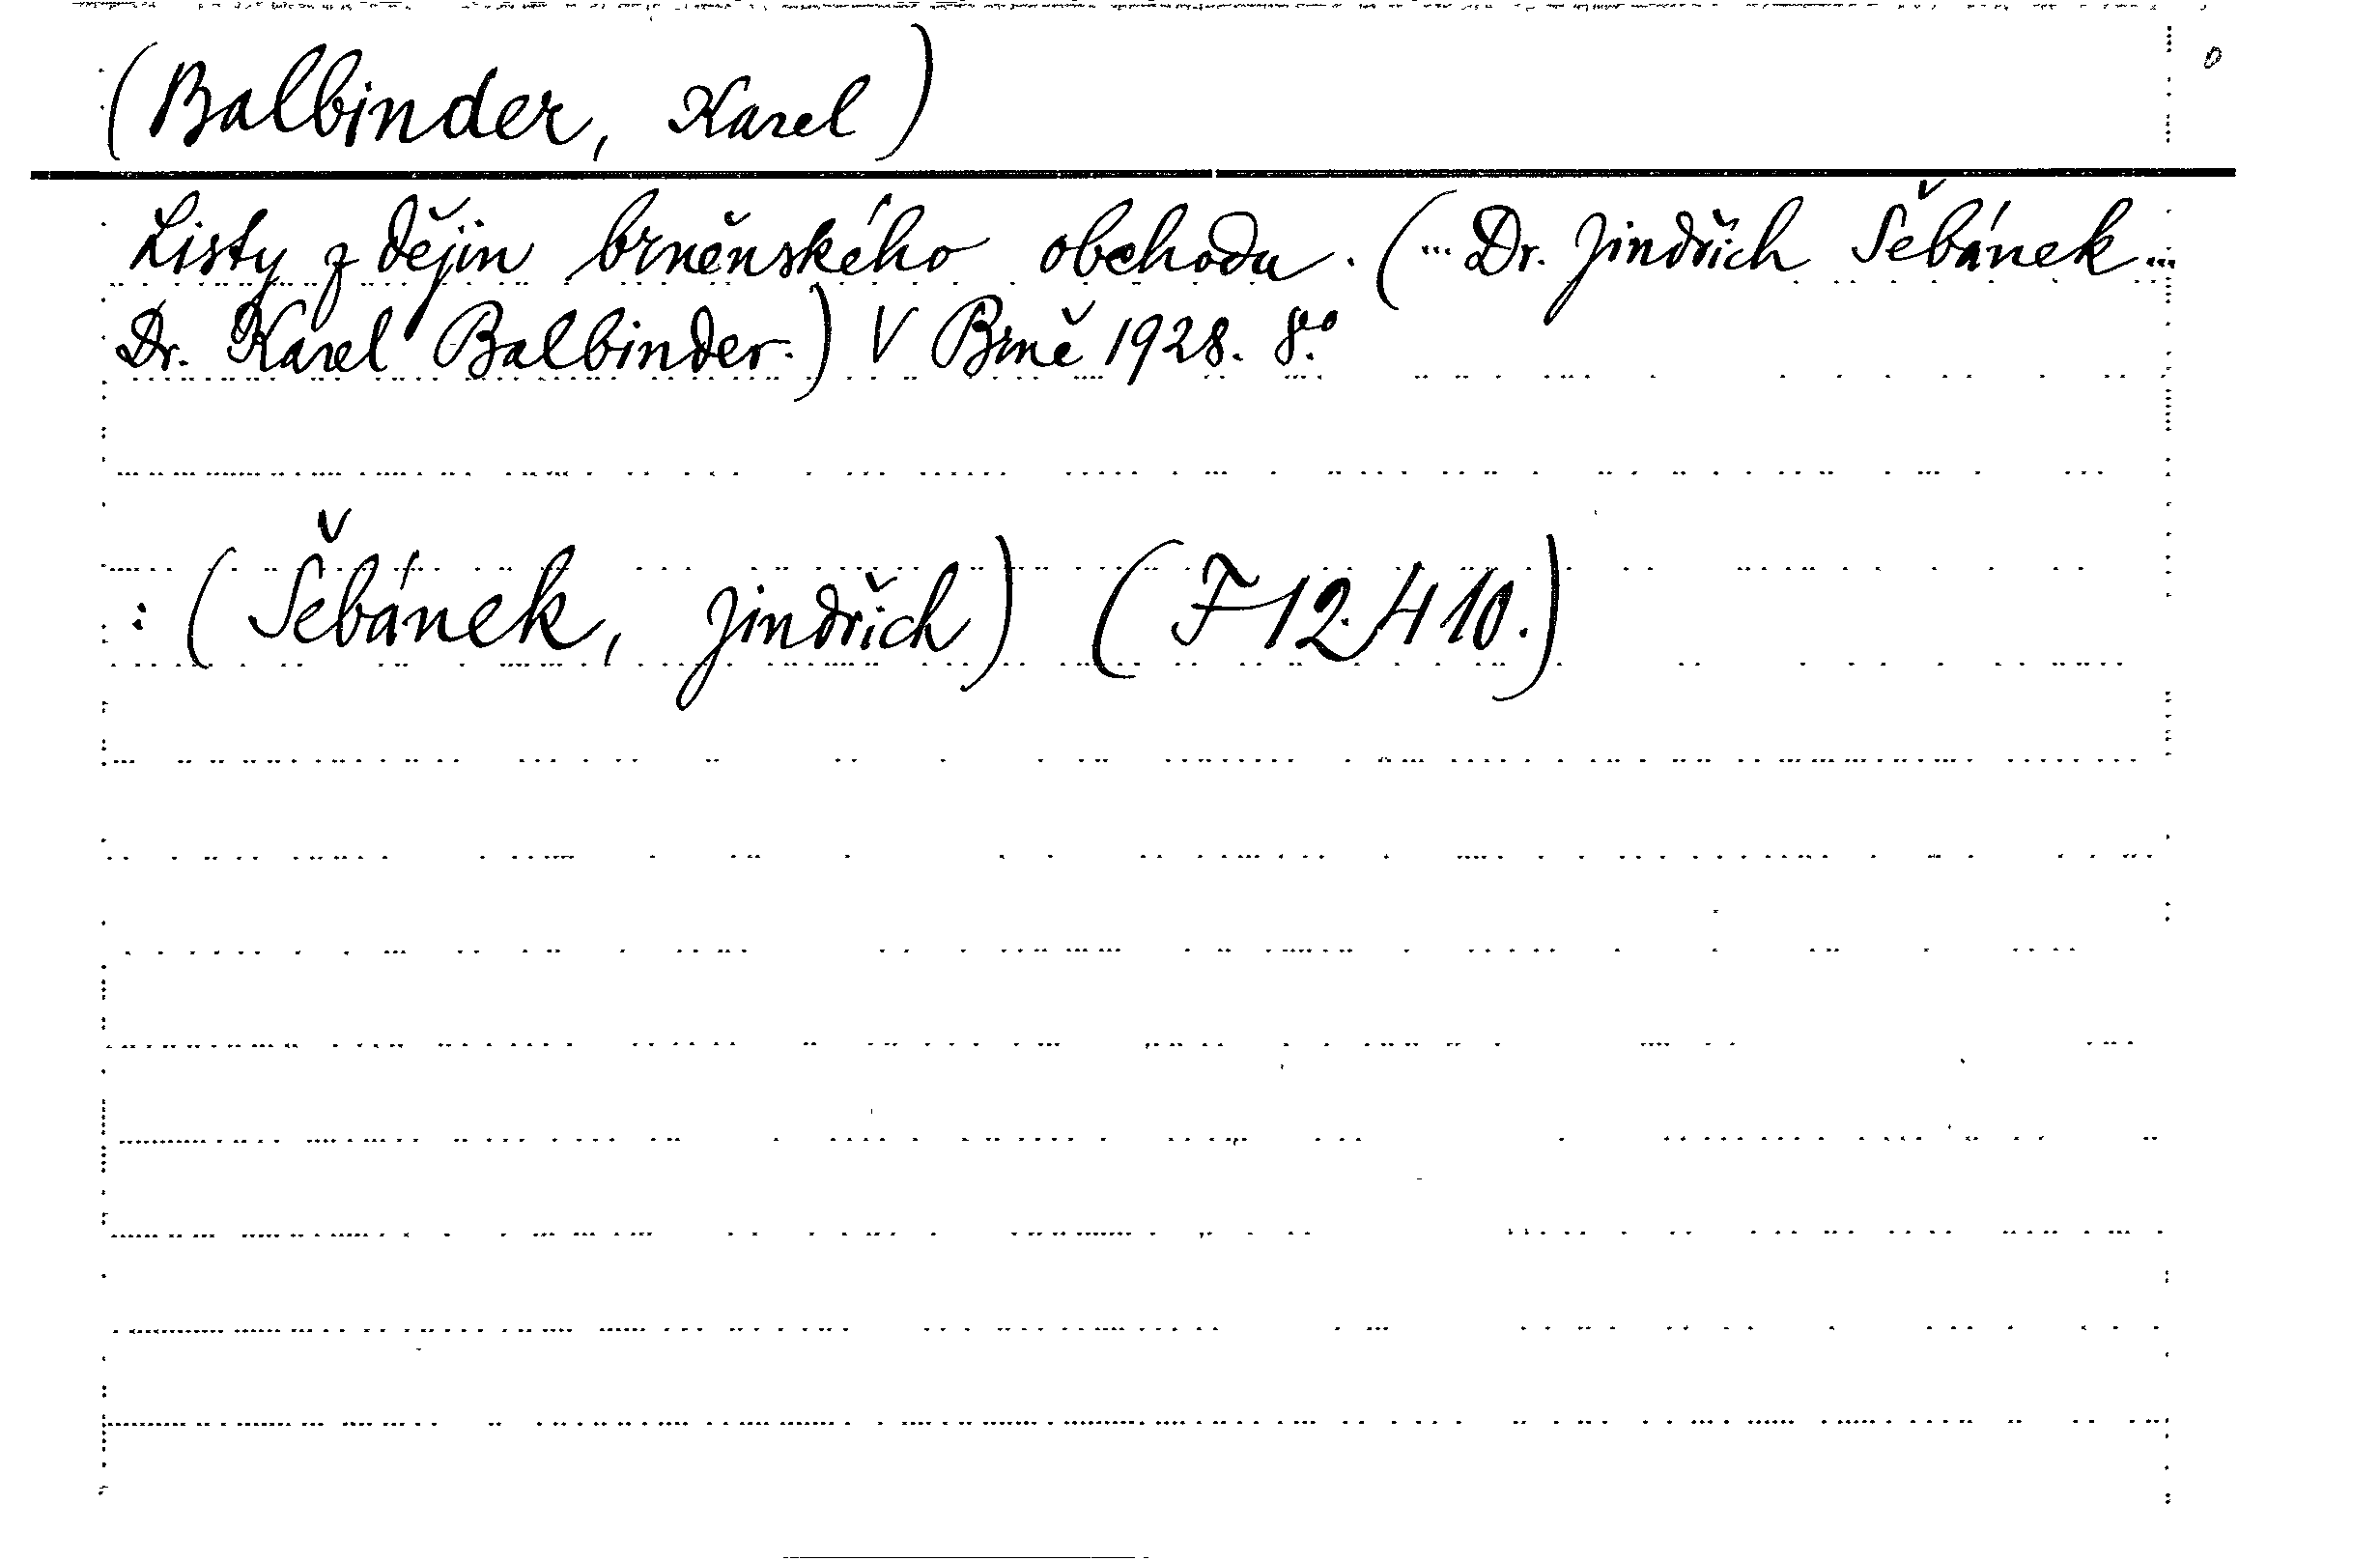 (Balbinder, Karel)
Listy z dějin brněnského obchodu. (... Dr. Jindřich Šebánek ...
Dr. Karel Balbinder.) V Brně 1928. 8.vo
: (Šebánek, Jindřich) (F 12.410.)